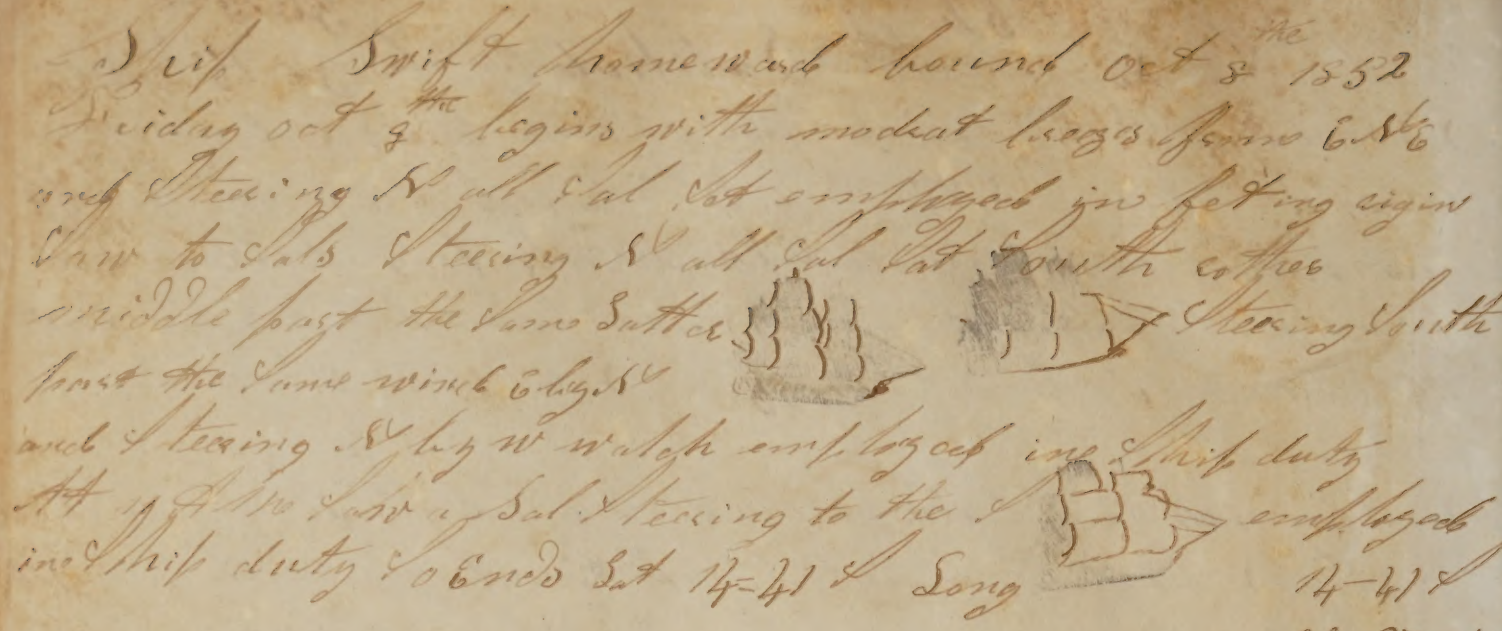 Ship Swift homeward bound Oct 8 the 1852
Friday oct 8 the begins with modrat breezes from E N by E
and Steering N all Sal Sat employed in feting rigin
Saw to Sals Steering N all Sal Sat South
middle part the Same Latter Steering South
part the Same wind E by N
and Steering N by W watch employed ine Ship duty
At Saw a Sal Steering to the S employed
ine Ship duty So Ends Lat 14-41 S Long 14-41 S